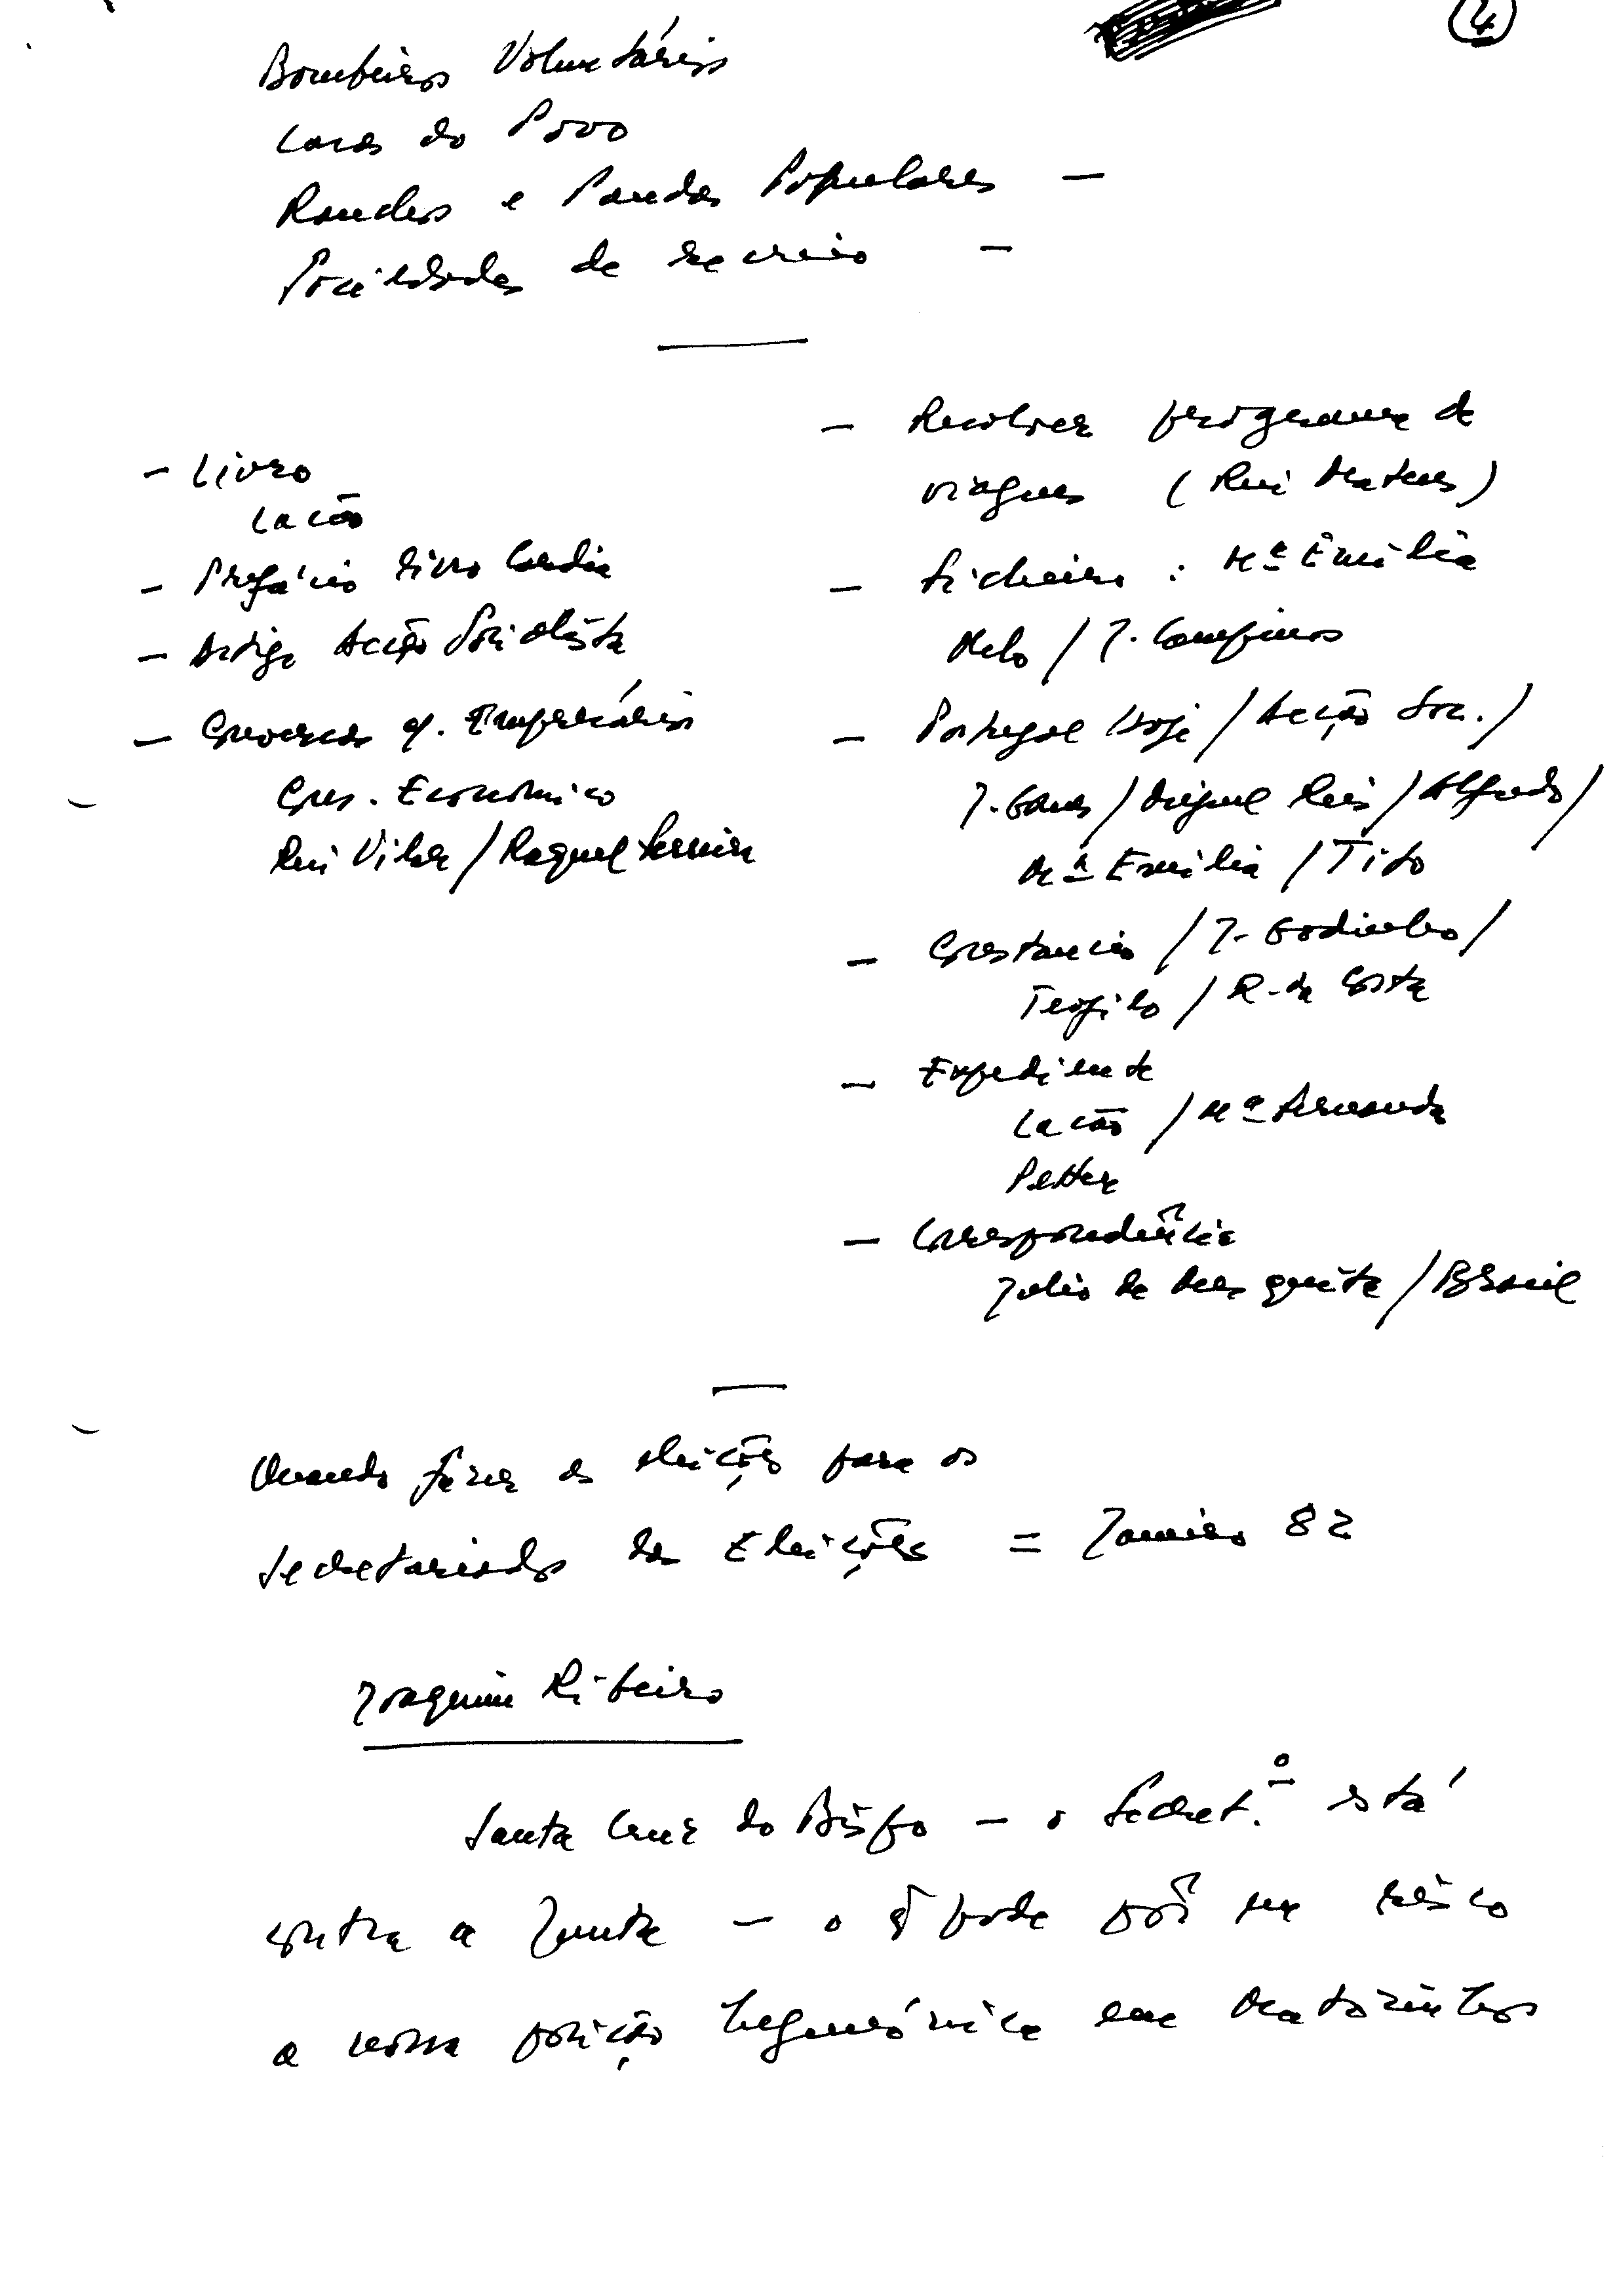 4
Bombeiros Voluntários
Casas do Povo
Ranchos e Bandas Populares —
Sociedades de recreio —
— Livro
Lacão
— Prefácio livro Cardia
— Artigo Acção Socialista
— Conversas c/. Empresários
Cons. Económico
Rui Vilar / Raquel Ferreira
— Resolver programa de
viagens (Rui Mateus)
— Ficheiro : Mª Emília
Melo / J. Campinos
— Portugal Hoje / Acção Soc. /
J. Gomes / Miguel Reis / Alfredo /
Mª Emília / Tito
— Constancio / J. Godinho /
Teofilo / R. da Costa
— Expediente
Lacão / Mª Fernanda
Petter
— Correspondência
Julio de Mesquita / Brasil
Quando fazer as eleições para os
Secretariados das Eleições = Janeiro 82
Joaquim Ribeiro
Santa Cruz do Bispo — o Secret.º está
contra a Junta — o q̃ pode pôr em risco
a nossa posição hegemónica em Matosinhos